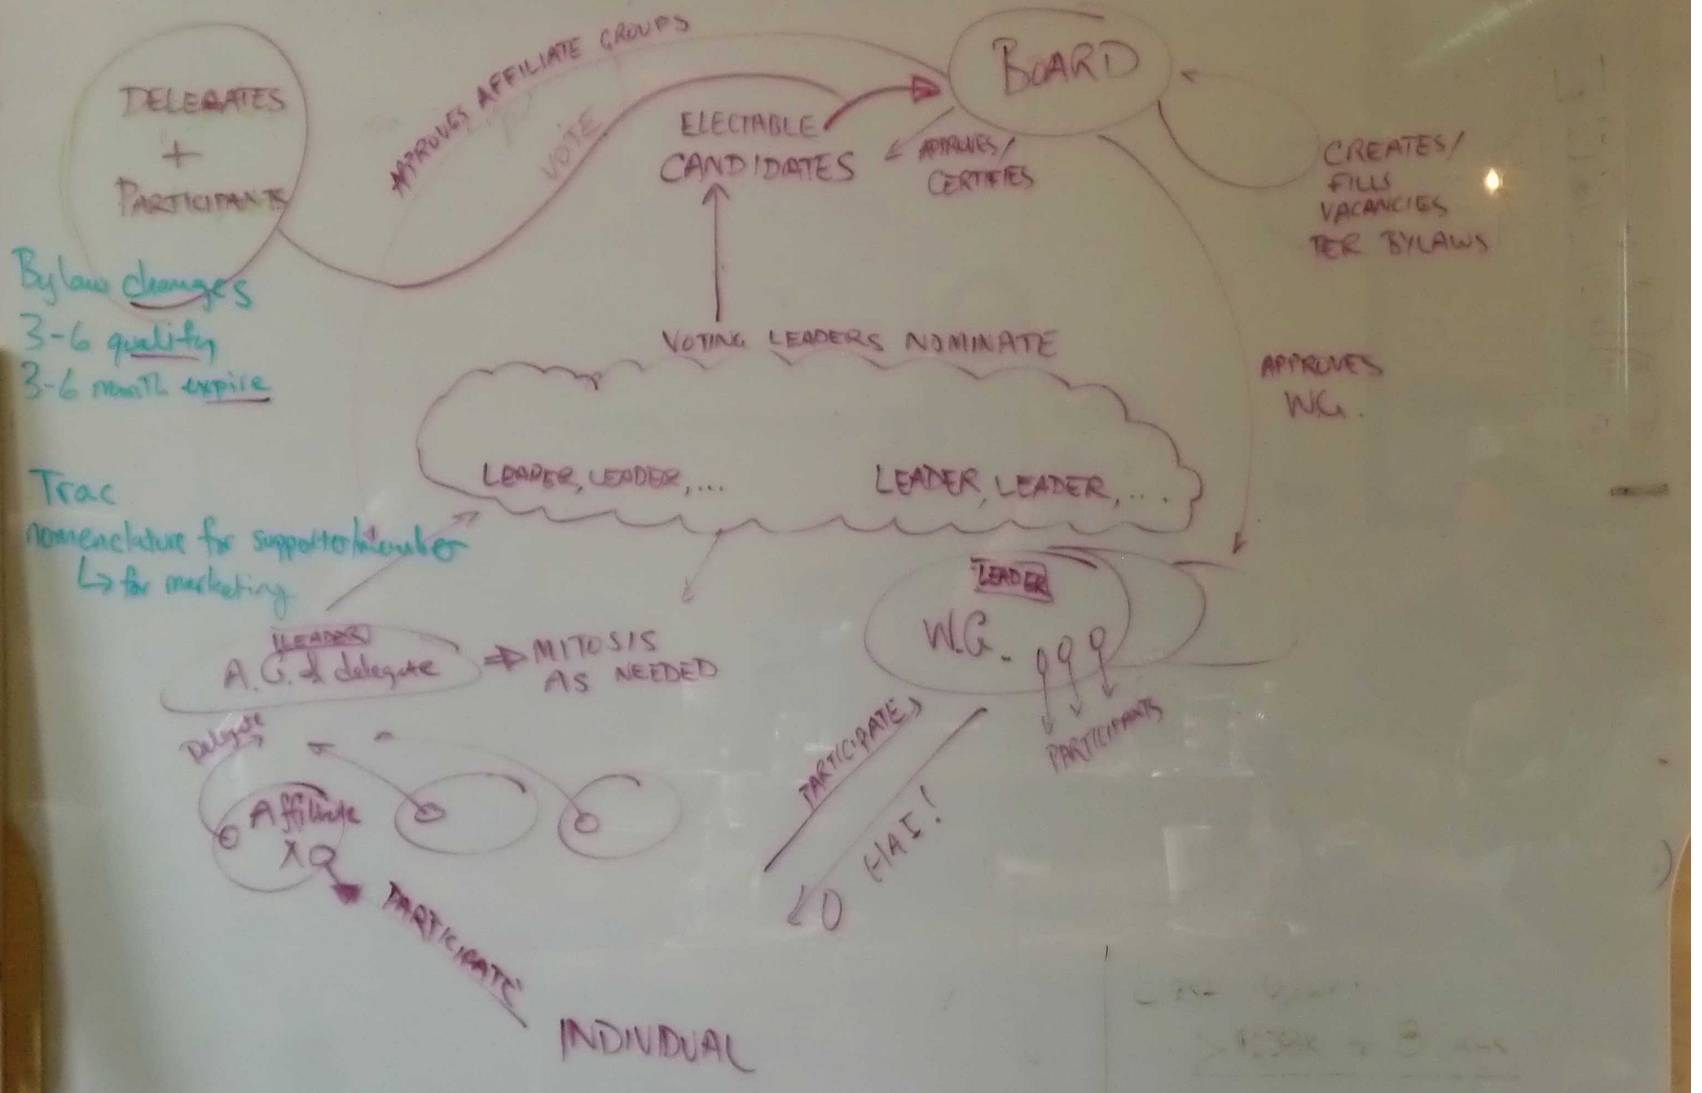 DELEGATES
+
PARTICIPANTS
APPROVES AFFILIATE GROUPS
VOTE
BOARD
ELECTABLE
CANDIDATES
APPROVES/
CERTIFIES
CREATES/
FILLS
VACANCIES
PER BYLAWS
Bylaw changes
3-6 qualify
3-6 month expire
VOTING LEADERS NOMINATE
APPROVES
W.G.
LEADER, LEADER, ...
LEADER, LEADER, ....
Trac
nomenclature for supporter/member
↳ for marketing
LEADER
A.G. delegate
⇒ MITOSIS
AS NEEDED
LEADER
W.G.
PARTICIPANTS
Delegate
Affiliate
X
PARTICIPATE
PARTICIPATE
O HAI!
INDIVIDUAL